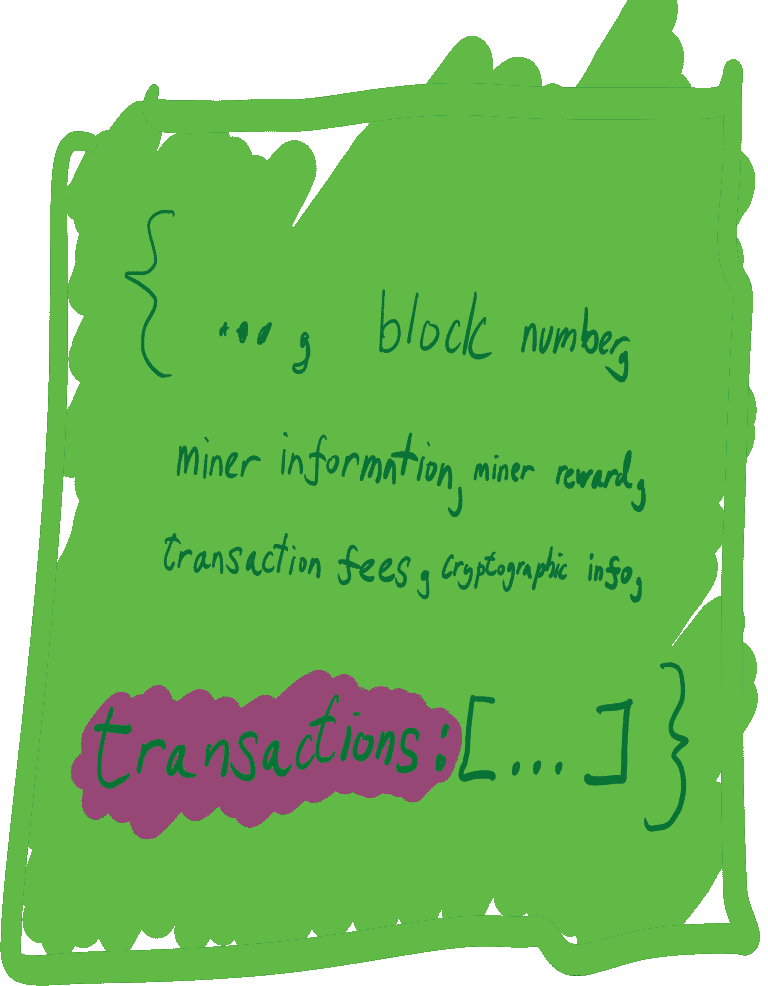 { ..., block number,
miner information, miner reward,
transaction fees, cryptographic info,
transactions:[...] }